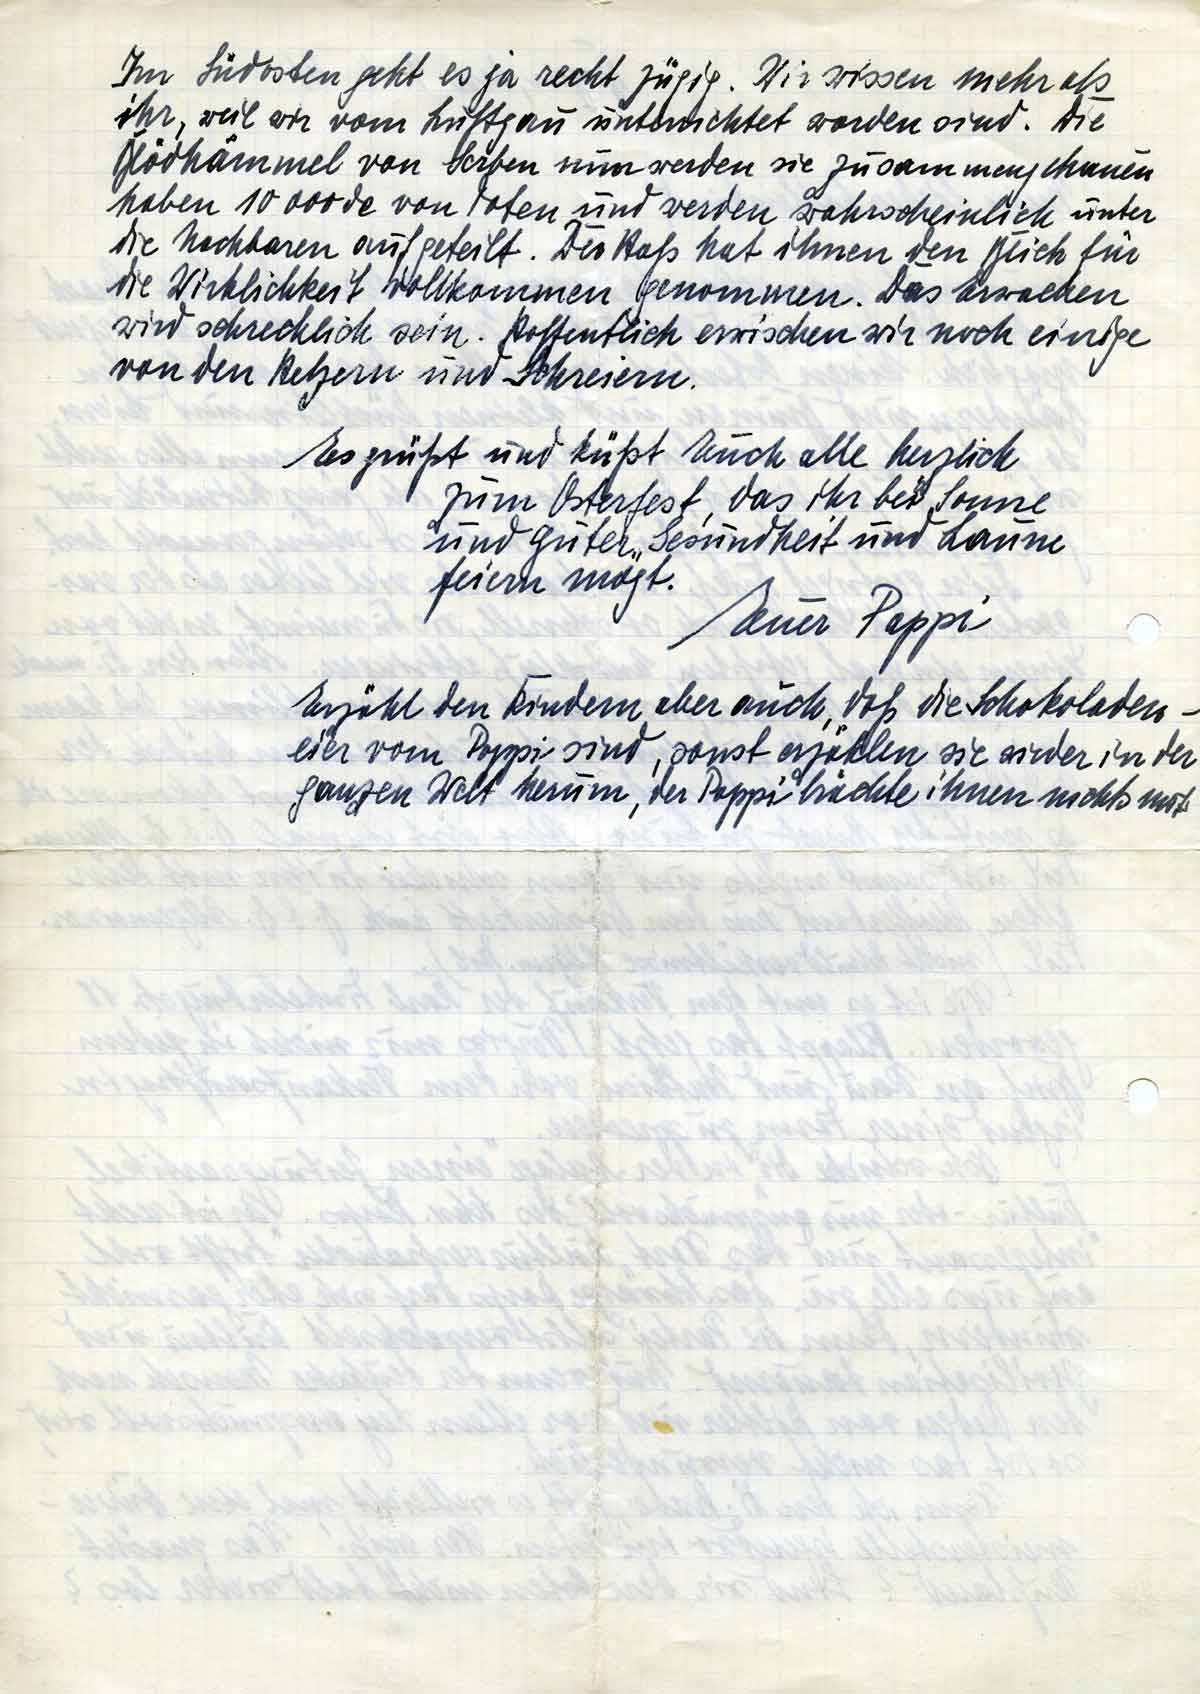 Im Südosten geht es ja recht zügig. Wir wissen mehr als
ihr, weil wir vom Luftgau unterrichtet worden sind. Die
Blödhämmel von Serben nun werden sie zusammengehauen
haben 10 000de von Toten und werden wahrscheinlich unter
die Nachbaren aufgeteilt. Der Haß hat ihnen den Blick für
die Wirklichkeit vollkommen genommen. Das Erwachen
wird schrecklich sein. Hoffentlich erwischen wir noch einige
von den Hetzern und Schreiern.
Es grüßt und küßt Euch alle herzlich
zum Osterfest, das ihr bei Sonne
und guter Gesundheit und Laune
feiern mögt.
Euer Pappi
Erzähl den Kindern aber auch, daß die Schokoladen-
eier vom Pappi sind, sonst erzählen sie wieder in der
ganzen Welt herum, der Pappi brächte ihnen nichts mit